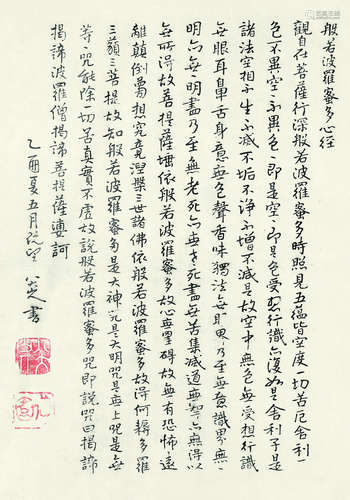 般若波羅蜜多心經
觀自在菩薩行深般若波羅蜜多時照見五蘊皆空度一切苦厄舍利一
色不異空空不異色色即是空空即是色受想行識亦復如是舍利子是
諸法空相不生不滅不垢不淨不增不減是故空中無色無受想行識
無眼耳鼻舌身意無色聲香味獨法無眼界乃至無意識界無無
明亦無無明盡乃至無老死亦無老死盡無苦集滅道無智亦無得以
無所得故菩提薩埵依般若波羅蜜多故心無罣礙故無有恐怖遠
離顛倒夢想究竟涅槃三世諸佛依般若波羅蜜多故得阿耨多羅
三藐三菩提故知般若波羅蜜多是大神咒是大明咒是無上咒是無
等咒能除一切苦真實不虛故說般若波羅蜜多咒即說咒曰揭諦
揭諦波羅僧揭諦菩提薩婆訶
乙酉夏五月既望
書